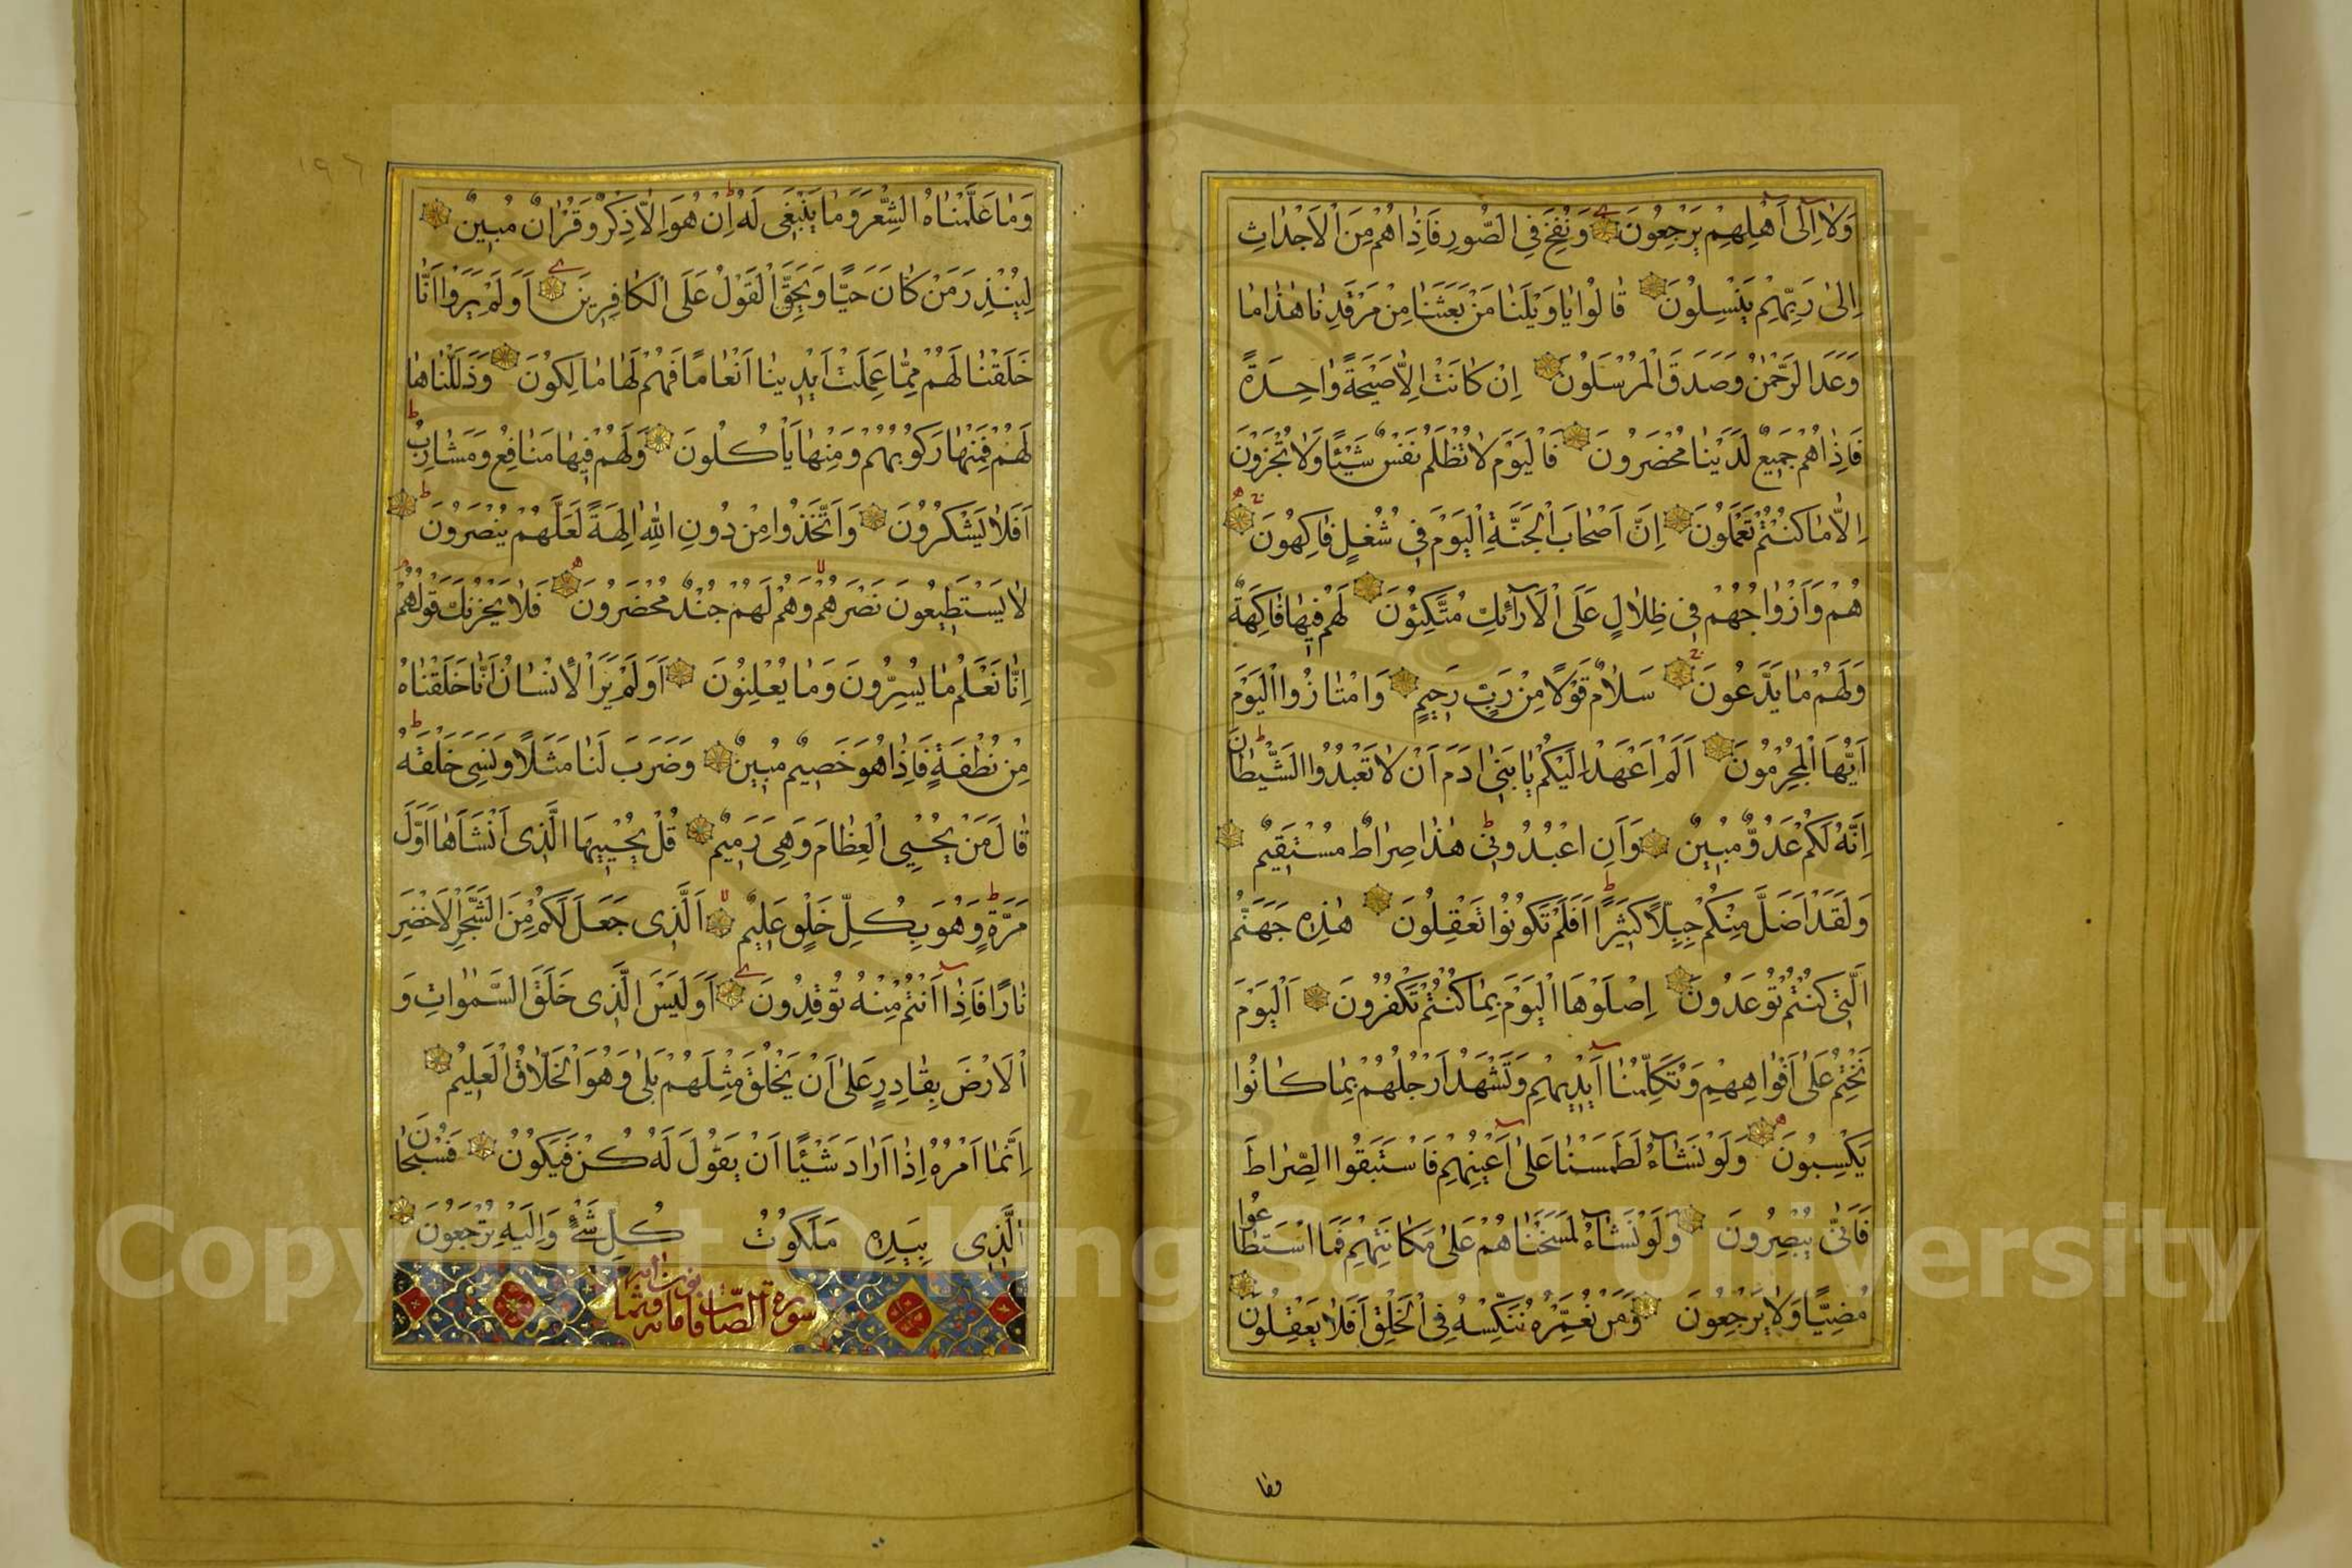 وَلَا إِلَىٰ أَهْلِهِمْ يَرْجِعُونَ وَنُفِخَ فِي الصُّورِ فَإِذَا هُمْ مِنَ الْأَجْدَاثِ
إِلَىٰ رَبِّهِمْ يَنْسِلُونَ قَالُوا يَا وَيْلَنَا مَنْ بَعَثَنَا مِنْ مَرْقَدِنَا هٰذَا مَا
وَعَدَ الرَّحْمٰنُ وَصَدَقَ الْمُرْسَلُونَ إِنْ كَانَتْ إِلَّا صَيْحَةً وَاحِدَةً
فَإِذَا هُمْ جَمِيعٌ لَدَيْنَا مُحْضَرُونَ فَالْيَوْمَ لَا تُظْلَمُ نَفْسٌ شَيْئًا وَلَا تُجْزَوْنَ
إِلَّا مَا كُنْتُمْ تَعْمَلُونَ إِنَّ أَصْحَابَ الْجَنَّةِ الْيَوْمَ فِي شُغُلٍ فَاكِهُونَ
هُمْ وَأَزْوَاجُهُمْ فِي ظِلَالٍ عَلَى الْأَرَائِكِ مُتَّكِئُونَ لَهُمْ فِيهَا فَاكِهَةٌ
وَلَهُمْ مَا يَدَّعُونَ سَلَامٌ قَوْلًا مِنْ رَبٍّ رَحِيمٍ وَامْتَازُوا الْيَوْمَ
أَيُّهَا الْمُجْرِمُونَ أَلَمْ أَعْهَدْ إِلَيْكُمْ يَا بَنِي آدَمَ أَنْ لَا تَعْبُدُوا الشَّيْطَانَ
إِنَّهُ لَكُمْ عَدُوٌّ مُبِينٌ وَأَنِ اعْبُدُونِي هٰذَا صِرَاطٌ مُسْتَقِيمٌ
وَلَقَدْ أَضَلَّ مِنْكُمْ جِبِلًّا كَثِيرًا أَفَلَمْ تَكُونُوا تَعْقِلُونَ هٰذِهِ جَهَنَّمُ
الَّتِي كُنْتُمْ تُوعَدُونَ اِصْلَوْهَا الْيَوْمَ بِمَا كُنْتُمْ تَكْفُرُونَ اَلْيَوْمَ
نَخْتِمُ عَلَىٰ أَفْوَاهِهِمْ وَتُكَلِّمُنَا أَيْدِيهِمْ وَتَشْهَدُ أَرْجُلُهُمْ بِمَا كَانُوا
يَكْسِبُونَ وَلَوْ نَشَاءُ لَطَمَسْنَا عَلَىٰ أَعْيُنِهِمْ فَاسْتَبَقُوا الصِّرَاطَ
فَأَنَّىٰ يُبْصِرُونَ وَلَوْ نَشَاءُ لَمَسَخْنَاهُمْ عَلَىٰ مَكَانَتِهِمْ فَمَا اسْتَطَاعُوا
مُضِيًّا وَلَا يَرْجِعُونَ وَمَنْ نُعَمِّرْهُ نُنَكِّسْهُ فِي الْخَلْقِ أَفَلَا يَعْقِلُونَ
وما
١٩٦
وَمَا عَلَّمْنَاهُ الشِّعْرَ وَمَا يَنْبَغِي لَهُ إِنْ هُوَ إِلَّا ذِكْرٌ وَقُرْآنٌ مُبِينٌ
لِيُنْذِرَ مَنْ كَانَ حَيًّا وَيَحِقَّ الْقَوْلُ عَلَى الْكَافِرِينَ أَوَلَمْ يَرَوْا أَنَّا
خَلَقْنَا لَهُمْ مِمَّا عَمِلَتْ أَيْدِينَا أَنْعَامًا فَهُمْ لَهَا مَالِكُونَ وَذَلَّلْنَاهَا
لَهُمْ فَمِنْهَا رَكُوبُهُمْ وَمِنْهَا يَأْكُلُونَ وَلَهُمْ فِيهَا مَنَافِعُ وَمَشَارِبُ
أَفَلَا يَشْكُرُونَ وَاتَّخَذُوا مِنْ دُونِ اللّٰهِ آلِهَةً لَعَلَّهُمْ يُنْصَرُونَ
لَا يَسْتَطِيعُونَ نَصْرَهُمْ وَهُمْ لَهُمْ جُنْدٌ مُحْضَرُونَ فَلَا يَحْزُنْكَ قَوْلُهُمْ
إِنَّا نَعْلَمُ مَا يُسِرُّونَ وَمَا يُعْلِنُونَ أَوَلَمْ يَرَ الْإِنْسَانُ أَنَّا خَلَقْنَاهُ
مِنْ نُطْفَةٍ فَإِذَا هُوَ خَصِيمٌ مُبِينٌ وَضَرَبَ لَنَا مَثَلًا وَنَسِيَ خَلْقَهُ
قَالَ مَنْ يُحْيِي الْعِظَامَ وَهِيَ رَمِيمٌ قُلْ يُحْيِيهَا الَّذِي أَنْشَأَهَا أَوَّلَ
مَرَّةٍ وَهُوَ بِكُلِّ خَلْقٍ عَلِيمٌ اَلَّذِي جَعَلَ لَكُمْ مِنَ الشَّجَرِ الْأَخْضَرِ
نَارًا فَإِذَا أَنْتُمْ مِنْهُ تُوقِدُونَ أَوَلَيْسَ الَّذِي خَلَقَ السَّمٰوَاتِ وَ
الْأَرْضَ بِقَادِرٍ عَلَىٰ أَنْ يَخْلُقَ مِثْلَهُمْ بَلَىٰ وَهُوَ الْخَلَّاقُ الْعَلِيمُ
إِنَّمَا أَمْرُهُ إِذَا أَرَادَ شَيْئًا أَنْ يَقُولَ لَهُ كُنْ فَيَكُونُ فَسُبْحَانَ
الَّذِي بِيَدِهِ مَلَكُوتُ كُلِّ شَيْءٍ وَإِلَيْهِ تُرْجَعُونَ
سورة الصافات
Copyright © King Saud University
1957